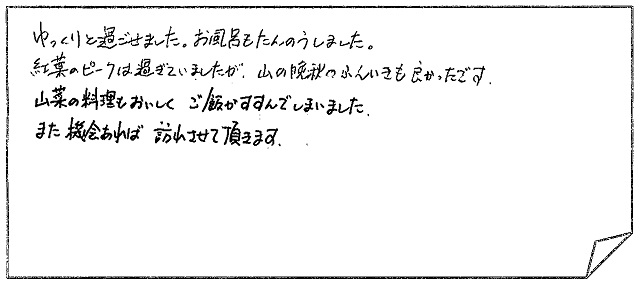 ゆっくりと過ごせました。お風呂もたんのうしました。
紅葉のピークは過ぎていましたが、山の晩秋のふんいきも良かったです。
山菜の料理もおいしく ご飯がすすんでしまいました。
また機会あれば 訪れさせて頂きます。